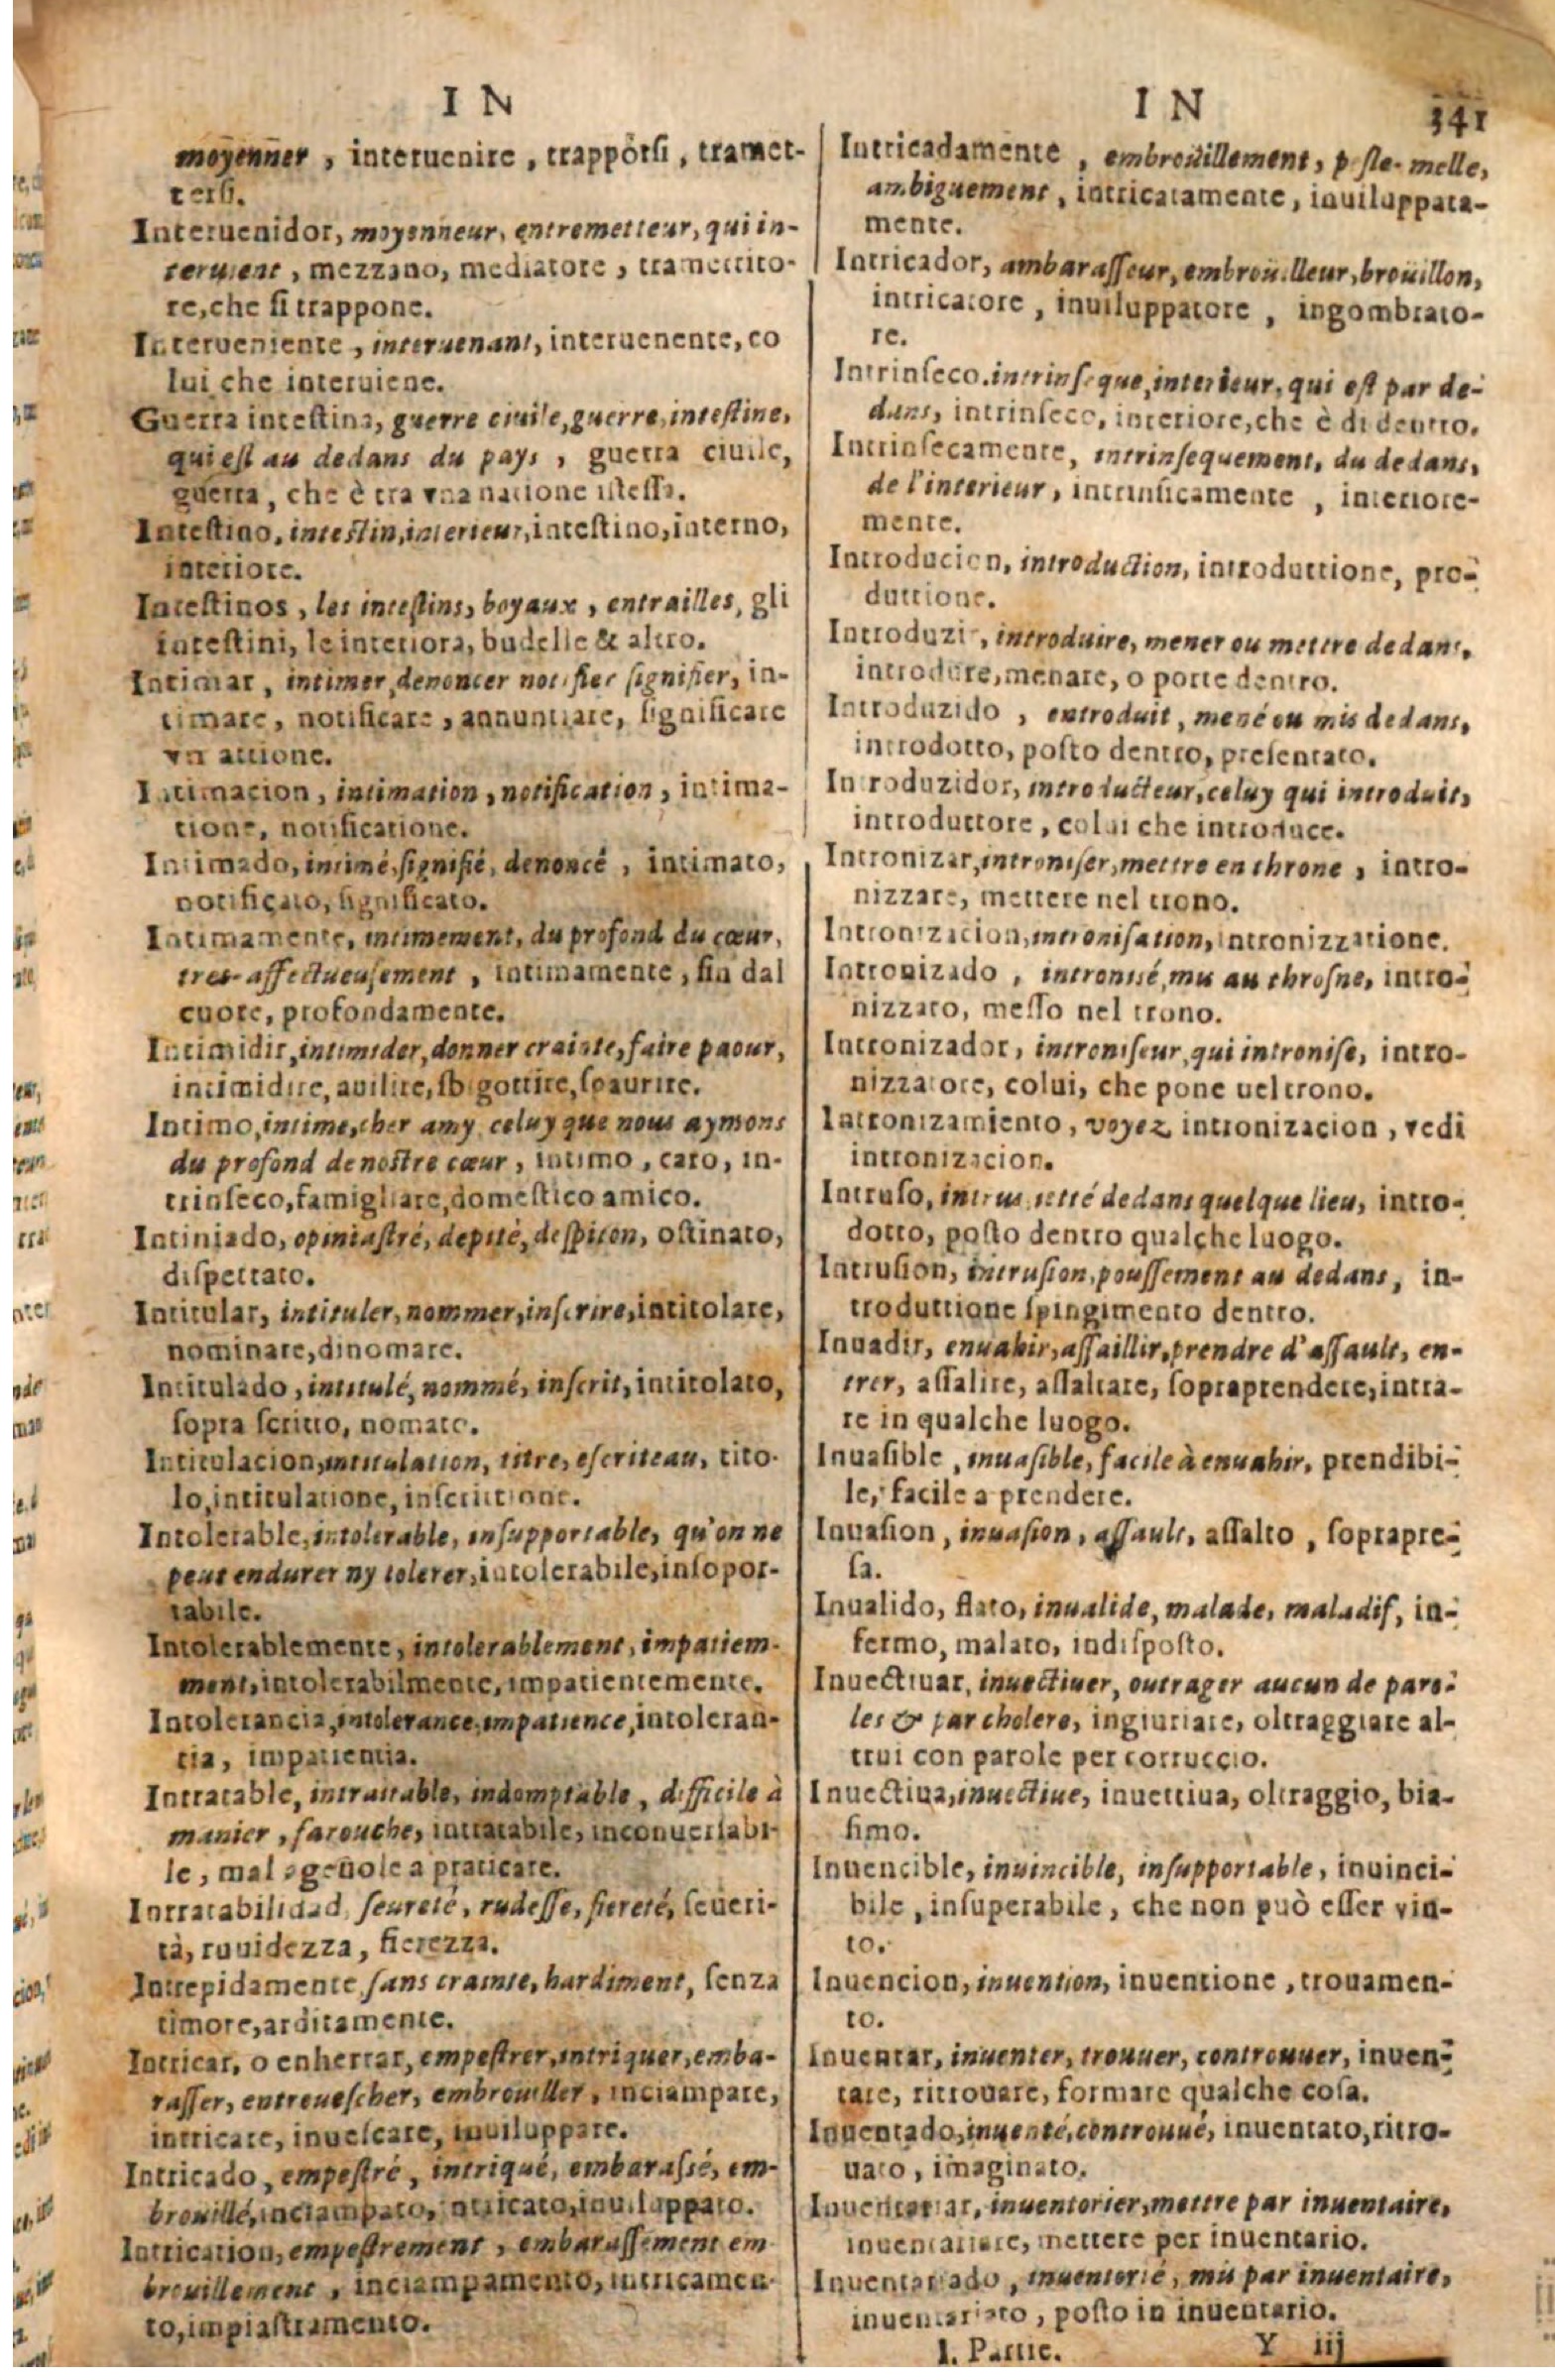 I N
moyenner, interuenire, trapporsi, tramet-
tersi.
Interuenidor, moyenneur, entremetteur, qui in-
teruient, mezzano, mediatore, tramettito-
re, che si trappone.
Interueniente, interuenant, interuenente, co
lui che interuiene.
Guerra intestina, guerre ciuile, guerre, intestine,
qui est au dedans du pays, guerra ciuile,
guerra, che è tra vna natione istessa.
Intestino, intestin, interieur, intestino, interno,
interiore.
Intestinos, les intestins, boyaux, entrailles, gli
intestini, le interiora, budelle & altro.
Intimar, intimer, denoncer notifier signifier, in-
timare, notificare, annuntiare, significare
vn attione.
Intimacion, intimation, notification, intima-
tione, notificatione.
Intimado, intimé, signifié, denoncé, intimato,
notificato, significato.
Intimamente, intimement, du profond du cœur,
tres-affectueusement, intimamente, fin dal
cuore, profondamente.
Intimidir, intimider, donner crainte, faire paour,
intimidire, auilire, sbigottire, spaurire.
Intimo, intime, cher amy celuy que nous aymons
du profond de nostre cœur, intimo, caro, in-
trinseco, famigliare, domestico amico.
Intiniado, opiniastré, depité, despiton, ostinato,
dispettato.
Intitular, intituler, nommer, inscrire, intitolare,
nominare, dinomare.
Intitulado, intitulé, nommé, inscrit, intitolato,
sopra scritto, nomato.
Intitulacion, intitulation, titre, escriteau, tito-
lo, intitulatione, inscrittione.
Intolerable, intolerable, insupportable, qu'on ne
peut endurer ny tolerer, intolerabile, insopor-
tabile.
Intolerablemente, intolerablement, impatiem-
ment, intolerabilmente, impatientemente.
Intolerancia, intolerance, impatience, intoleran-
tia, impatientia.
Intratable, intraitable, indomptable, difficile à
manier, farouche, intratabile, inconuersabi-
le, mal ageuole a praticare.
Intratabilidad, seureté, rudesse, fiereté, seueri-
tà, ruuidezza, fierezza.
Intrepidamente sans crainte, hardiment, senza
timore, arditamente.
Intricar, o enherrar, empestrer, intriquer, emba-
rasser, entreuescher, embrouiller, inciampare,
intricare, inuescare, inuiluppare.
Intricado, empestré, intriqué, embarassé, em-
brouillé, inciampato, intricato, inuiluppato.
Intrication, empestrement, embarassement em
brouillement, inciampamento, intricamen-
to, impiastramento.
I N 341
Intricadamente, embroüillement, pesle-melle,
ambiguement, intricatamente, inuiluppata-
mente.
Intricador, ambarasseur, embroüilleur, broüillon,
intricatore, inuiluppatore, ingombrato-
re.
Intrinseco. intrinseque, interieur, qui est par de-
dans, intrinseco, interiore, che è di dentro.
Intrinsecamente, intrinsequement, du dedans,
de l'interieur, intrinsicamente, interiore-
mente.
Introducion, introduction, introduttione, pro-
duttione.
Introduzir, introduire, mener ou mettre dedans,
introdure, menare, o porte dentro.
Introduzido, entroduit, mené ou mis dedans,
introdotto, posto dentro, presentato.
Introduzidor, introducteur, celuy qui introduit,
introduttore, colui che introduce.
Intronizar, introniser, mettre en throne, intro-
nizzare, mettere nel trono.
Intronizacion, intronisation, intronizzatione.
Intronizado, intronisé, mu au throsne, intro-
nizzato, messo nel trono.
Intronizador, introniseur, qui intronise, intro-
nizzatore, colui, che pone uel trono.
Intronizamiento, voyez intronizacion, vedi
intronizacion.
Intruso, intrus, ietté dedans quelque lieu, intro-
dotto, posto dentro qualche luogo.
Intrusion, intrusion, poussement au dedans, in-
troduttione spingimento dentro.
Inuadir, enuahir, assaillir, prendre d'assault, en-
trer, assalire, assaltare, sopraprendere, intra-
re in qualche luogo.
Inuasible, inuasible, facile à enuahir, prendibi-
le, facile a prendere.
Inuasion, inuasion, assault, assalto, soprapre-
sa.
Inualido, flato, inualide, malade, maladif, in-
fermo, malato, indisposto.
Inuectiuar, inuectiuer, outrager aucun de paro-
les & par cholere, ingiuriare, oltraggiare al-
trui con parole per corruccio.
Inuectiua, inuectiue, inuettiua, oltraggio, bia-
simo.
Inuencible, inuincible, insupportable, inuinci-
bile, insuperabile, che non può esser vin-
to.
Inuencion, inuention, inuentione, trouamen-
to.
Inuentar, inuenter, trouuer, controuuer, inuen-
tare, ritrouare, formare qualche cosa.
Inuentado, inuenté, controuué, inuentato, ritro-
uato, imaginato.
Inuentariar, inuentorier, mettre par inuentaire,
inuentariare, mettere per inuentario.
Inuentariado, inuentorié, mis par inuentaire,
inuentariato, posto in inuentario.
I. Partie. Y iij